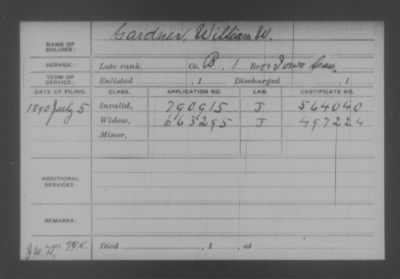 Gardner, William W.
NAME OF SOLDIER:
SERVICE: Late rank, Co. B, 1 Reg't Iowa Cav.
TERM OF SERVICE: Enlisted , 1 Discharged , 1
DATE OF FILING. CLASS. APPLICATION NO. LAW. CERTIFICATE NO.
1890 July 5 Invalid, 790915 J 564040
Widow, 663295 J 497224
Minor,
ADDITIONAL SERVICES:
REMARKS:
Died , 1 , at